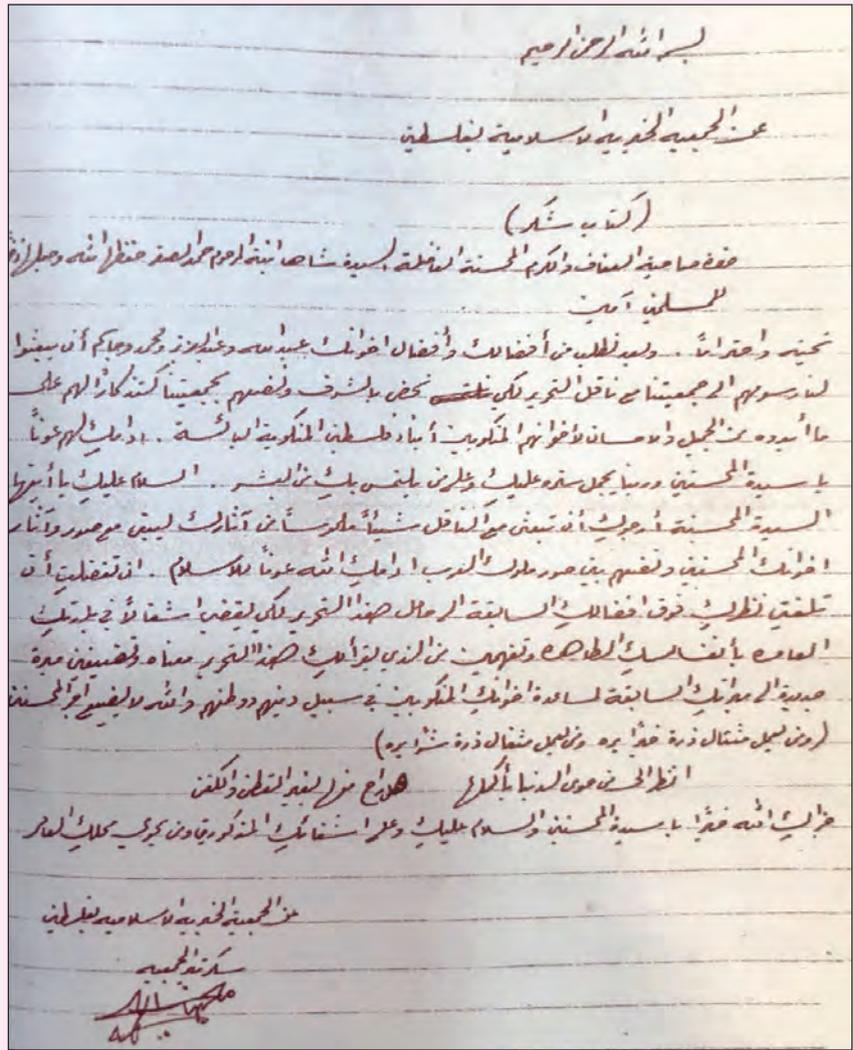 بسم الله الرحمن الرحيم
عن الجمعية الخيرية الاسلامية بفلسطين
(كتاب شكر)
حضرة صاحبة العفاف والكرم المحسنة الفاضلة السيدة شاها ابنة المرحوم حمد الصقر حفظها الله وجعلها
للمسلمين آمين
تحية واحتراماً . وبعد نطلب من أفضالك وأفضال اخوانك عبدالله وعبدالعزيز ومحمد وجاسم أن يبعثوا
لنا رسومهم الى جمعيتنا مع ناقل التحرير لكي نحض بالشرف ونضعهم بجمعيتنا كتذكاراً لهم على
ما أبدوه من الجميل والاحسان لأخوانهم المنكوبين أبناء فلسطين المنكوبة البائسة . ادامك لهم عوناً
يا سيدة المحسنين وربنا يجمل ستره عليك وعلى من يلتمس بك من البشر . السلام عليك يا أيتها
السيدة المحسنة أرجوك أن تبعثي مع الناقل شيئاً ملموساً من آثارك ليبقى مع صور وآثار
اخوانك المحسنين ونضعهم بين صور ملوك العرب ادامك الله عوناً للاسلام . ان تفضلت أن
تلفتي نظرك فوق افضالك السابقة الى حامل هذا التحرير لكي يقضي اشغالاً في بلدتك
العامره بأنفاسك الطاهره وتفهمين من الذي يقرألك هذا التحرير معناه وتضيفين مبرة
جديدة الى مبراتك السابقة لمساعدة اخوانك المنكوبين في سبيل دينهم ووطنهم والله لا يضيع اجر المحسنين
(ومن يعمل مثقال ذرة خيرًا يره ومن يعمل مثقال ذرة شرًا يره)
انظر الى من حوى الدنيا بأكملها هل راح منها بغير القطن والكفن
جزاك الله خيرًا يا سيدة المحسنين والسلام عليك وعلى اشقائك المذكورين ومن يحوي محلك العامر
عن الجمعية الخيرية الاسلاميه بفلسطين
سكرتير الجمعيه